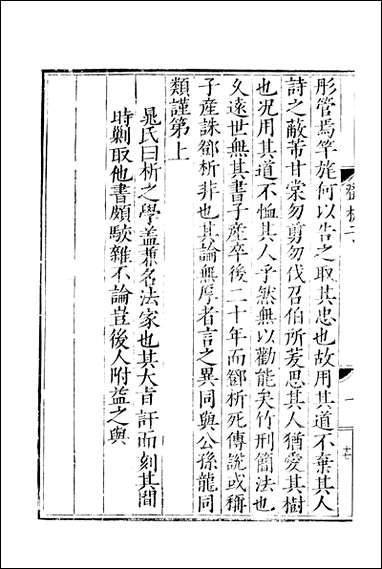 彤管焉竿旄何以告之取其忠也故用其道不棄其人
詩之蔽芾甘棠勿剪勿伐召伯所茇思其人猶愛其樹
也况用其道不恤其人乎然無以勸能矣竹刑簡法也
久遠世無其書子產卒後二十年而鄧析死傳說或稱
子產誅鄧析非也其論無厚者言之異同與公孫龍同
類謹第上
晁氏曰析之學蓋兼名法家也其大旨訐而刻其間
時勦取他書頗駁雜不論豈後人附益之與